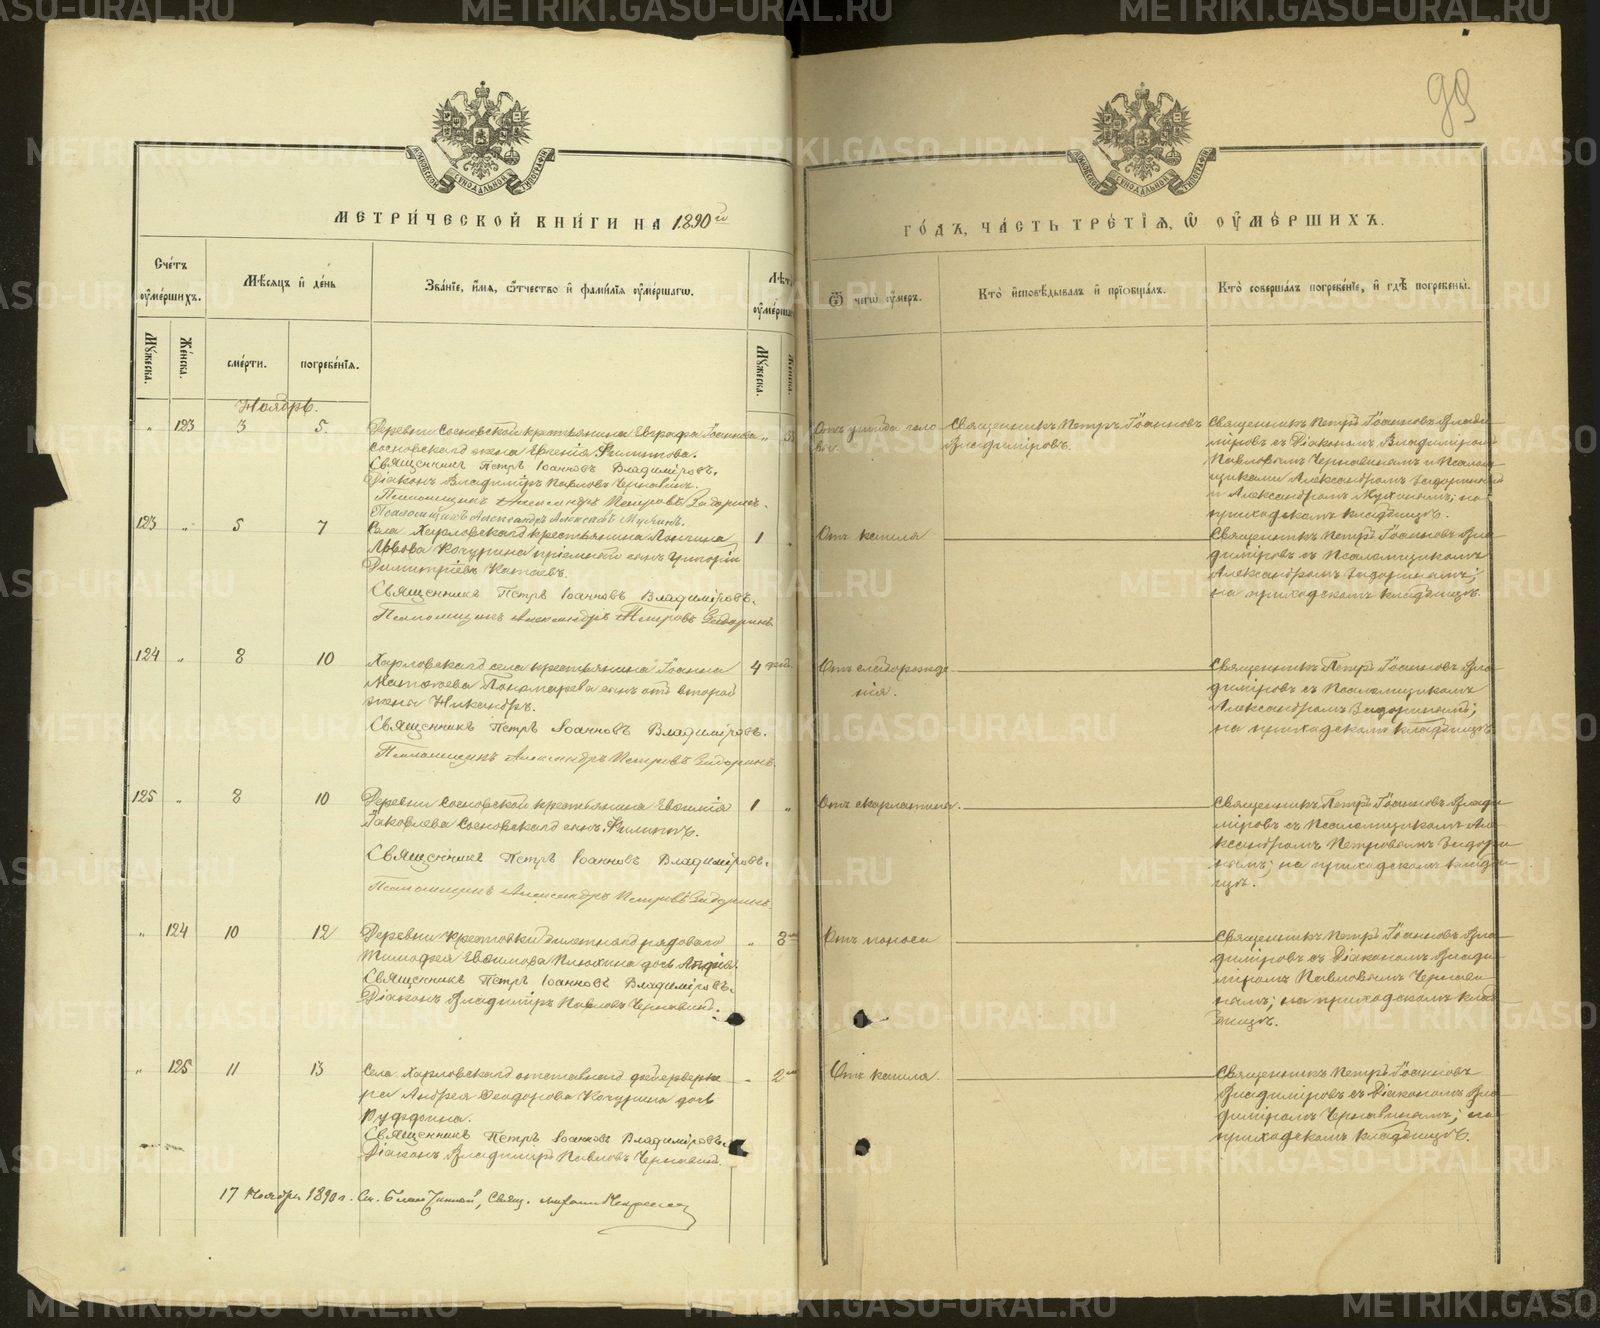 METRIKI.GASO-URAL.RU
99
МОСКОВСКОЙ СѴНОДАЛЬНОЙ ТИПОГРАФІИ
МЕТРИ́ЧЕСКОЙ КНИ́ГИ НА 1890й
ГО́ДЪ, ЧА́СТЬ ТРЕ́ТІѦ, Ѡ ОУМЕ́РШИХЪ.
Сче́тъ оуме́ршихъ.
Мѣ́сѧцъ и де́нь
Зва́нїе, и́мѧ, ѻ́тчество и фами́лїѧ оуме́ршагѡ.
Лѣта оуме́ршаго
Ѿ чегѡ̀ оу́меръ.
Кто̀ исповѣ́дывалъ и прїѻбща́лъ.
Кто̀ соверша́лъ погребе́нїе, и гдѣ̀ погребены̀.
Мꙋ́жеска.
Же́нска.
сме́рти.
погребе́нїѧ.
Мꙋ́жеска.
Же́нска.
Ноябрь.
" 123 3 5.
Деревни Сосновской крестьянина Евграфа Іоаннова
Сосновскаго жена Евгенія Филиппова.
Священникъ Петръ Іоанновъ Владиміровъ.
Діаконъ Владиміръ Павловъ Чернавинъ.
Псаломщикъ Александръ Петровъ Задоринъ.
Псаломщикъ Александръ Алексѣевъ Мухинъ.
Отъ ушиба голо
вы.
Священникъ Петръ Іоанновъ
Владиміровъ.
Священникъ Петръ Іоанновъ Влади
міровъ съ Діакономъ Владиміромъ
Павловымъ Чернавинымъ и Псалом
щиками Александромъ Задоринымъ
и Александромъ Мухинымъ; на
приходскомъ кладбищѣ.
123 " 5 7
Села Харловскаго крестьянина Лонгина
Львова Качурина пріемный сынъ Григорій
Димитріевъ Катаевъ.
Священникъ Петръ Іоанновъ Владиміровъ.
Псаломщикъ Александръ Петровъ Задоринъ.
1 "
Отъ кашля
Священникъ Петръ Іоанновъ Вла
диміровъ съ Псаломщикомъ
Александромъ Задоринымъ;
на приходскомъ кладбищѣ.
124 " 8 10
Харловскаго села крестьянина Іоанна
Матѳеева Пономарева сынъ отъ второй
жены Никандръ.
Священникъ Петръ Іоанновъ Владиміровъ.
Псаломщикъ Александръ Петровъ Задоринъ.
4
Отъ слаборожде
нія.
Священникъ Петръ Іоанновъ Вла
диміровъ съ Псаломщикомъ
Александромъ Задоринымъ;
на приходскомъ кладбищѣ.
125 " 8 10
Деревни Сосновской крестьянина Евѳимія
Іаковлева Сосновскаго сынъ Филиппъ.
Священникъ Петръ Іоанновъ Владиміровъ.
Псаломщикъ Александръ Петровъ Задоринъ.
1 "
Отъ скарлатины.
Священникъ Петръ Іоанновъ Влади
міровъ съ Псаломщикомъ Але
ксандромъ Петровымъ Задори
нымъ; на приходскомъ кладби
щѣ.
" 124 10 12
Деревни Крестовки билетнаго рядоваго
Тимоѳея Евѳимова Плюхина дочь
Священникъ Петръ Іоанновъ Владиміровъ.
Діаконъ Владиміръ Павловъ Чернавинъ.
Отъ поноса
Священникъ Петръ Іоанновъ Вла
диміровъ съ Діакономъ Влади
міромъ Павловымъ Чернави
нымъ; на приходскомъ клад
бищѣ.
" 125 11 13
Села Харловскаго отставнаго фейерверке
ра Андрея Ѳеодорова Качурина дочь
Руфина.
Священникъ Петръ Іоанновъ Владиміровъ.
Діаконъ Владиміръ Павловъ Чернавинъ.
Отъ кашля.
Священникъ Петръ Іоанновъ
Владиміровъ съ Діакономъ Вла
диміромъ Чернавинымъ; на
приходскомъ кладбищѣ.
17 Ноября 1890 г. См. Благочинный, Свящ.